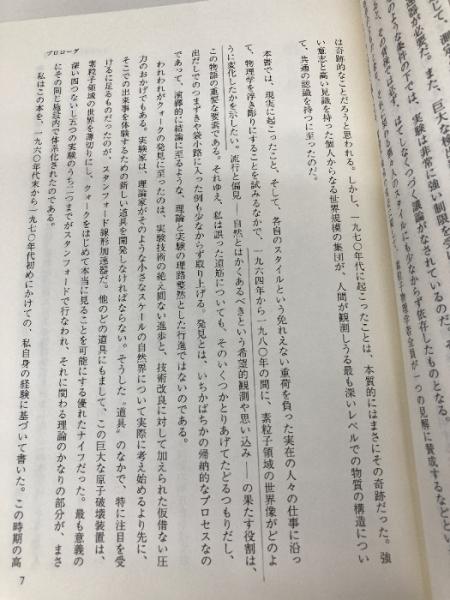 識が必要だ。また、巨大な
ような条件の下では、実験は非常に強い制限を受
はてしなくつづく議論がなされているのだ。
人のスタイルにも少なからず依存したものとなる。
素粒子物理学者全員が一つの見解に賛成するなどとい
は奇跡的なことだろうと思われる。しかし、一九七〇年代に起こったことは、本質的にはまさにその奇跡だった。強
い意志と高い見識を持った個人からなる世界規模の集団が、人間が観測しうる最も深いレベルでの物質の構造につい
て、共通の認識を持つに至ったのだ。
本書では、現実に起こったこと、そして、各自のスタイルという免れえない重荷を負った実在の人々の仕事に沿っ
て、物理学を浮き彫りにすることを試みるなかで、一九六四年から一九八〇年の間に、素粒子領域の世界像がどのよ
うに変化したかを示したい。流行と偏見――自然とはかくあるべきという希望的観測や思い込み――の果たす役割は、
この物語の重要な要素である。それゆえ、私は誤った道筋についても、そのいくつかとりあげてたどるつもりだし、
出だしでのつまずきや袋小路に入った例も少なからず取り上げる。発見とは、いちかばちかの帰納的なプロセスなの
であって、演繹的に結論に至るような、理論と実験の理路整然とした行進ではないのである。
われわれがクォークの発見に至ったのは、実験技術の絶え間ない進歩と、技術改良に対して加えられた仮借ない圧
力のおかげでもある。実験家は、理論家がそのような小さなスケールの自然界について実際に考え始めるより先に、
そこでの出来事を体験するための新しい道具を開発しなければならない。そうした〝道具〟のなかで、特に注目を受
けるに足るものだったのが、スタンフォード線形加速器だ。他のどの道具にもまして、この巨大な原子破壊装置は、
素粒子領域の世界を薄切りにし、クォークをはじめて本当に見ることを可能にする優れたナイフだった。最も意義の
深い四つないし五つの実験のうち二つまでがスタンフォードで行なわれ、それに関わる理論のかなりの部分が、まさ
にその間と施設内で体系化されたのである。
私はこの本を、一九六〇年代末から一九七〇年代初めにかけての、私自身の経験に基づいて書いた。この時期の高
プロローグ
7